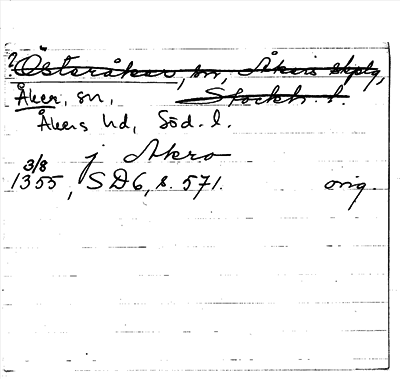 ? Österåker, sn, Åkers skplg,
Åker, sn, Stockh. l.
Åkers hd, Söd. l.
j Akro
3/8
1355, SD6, s. 571. orig.